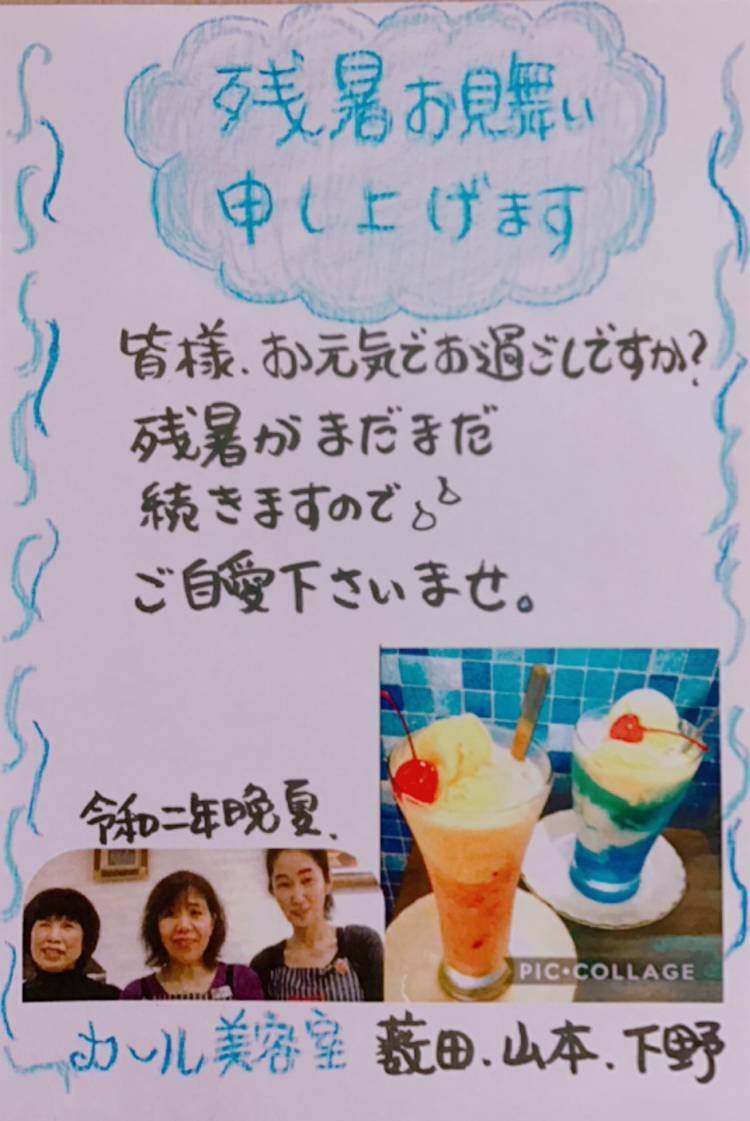 残暑お見舞い
申し上げます
皆様、お元気でお過ごしですか?
残暑がまだまだ
続きますので
ご自愛下さいませ。
令和二年晩夏、
PIC•COLLAGE
カール美容室 薮田、山本、下野